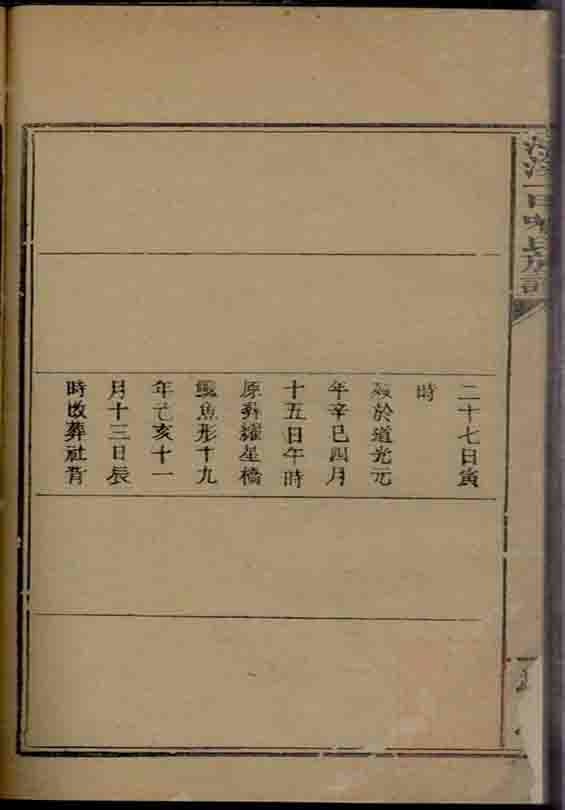 二十七日寅
時
歿於道光元
年辛巳四月
十五日午時
原葬耀星橋
魚形十九
年己亥十一
月十三日辰
時改葬社背